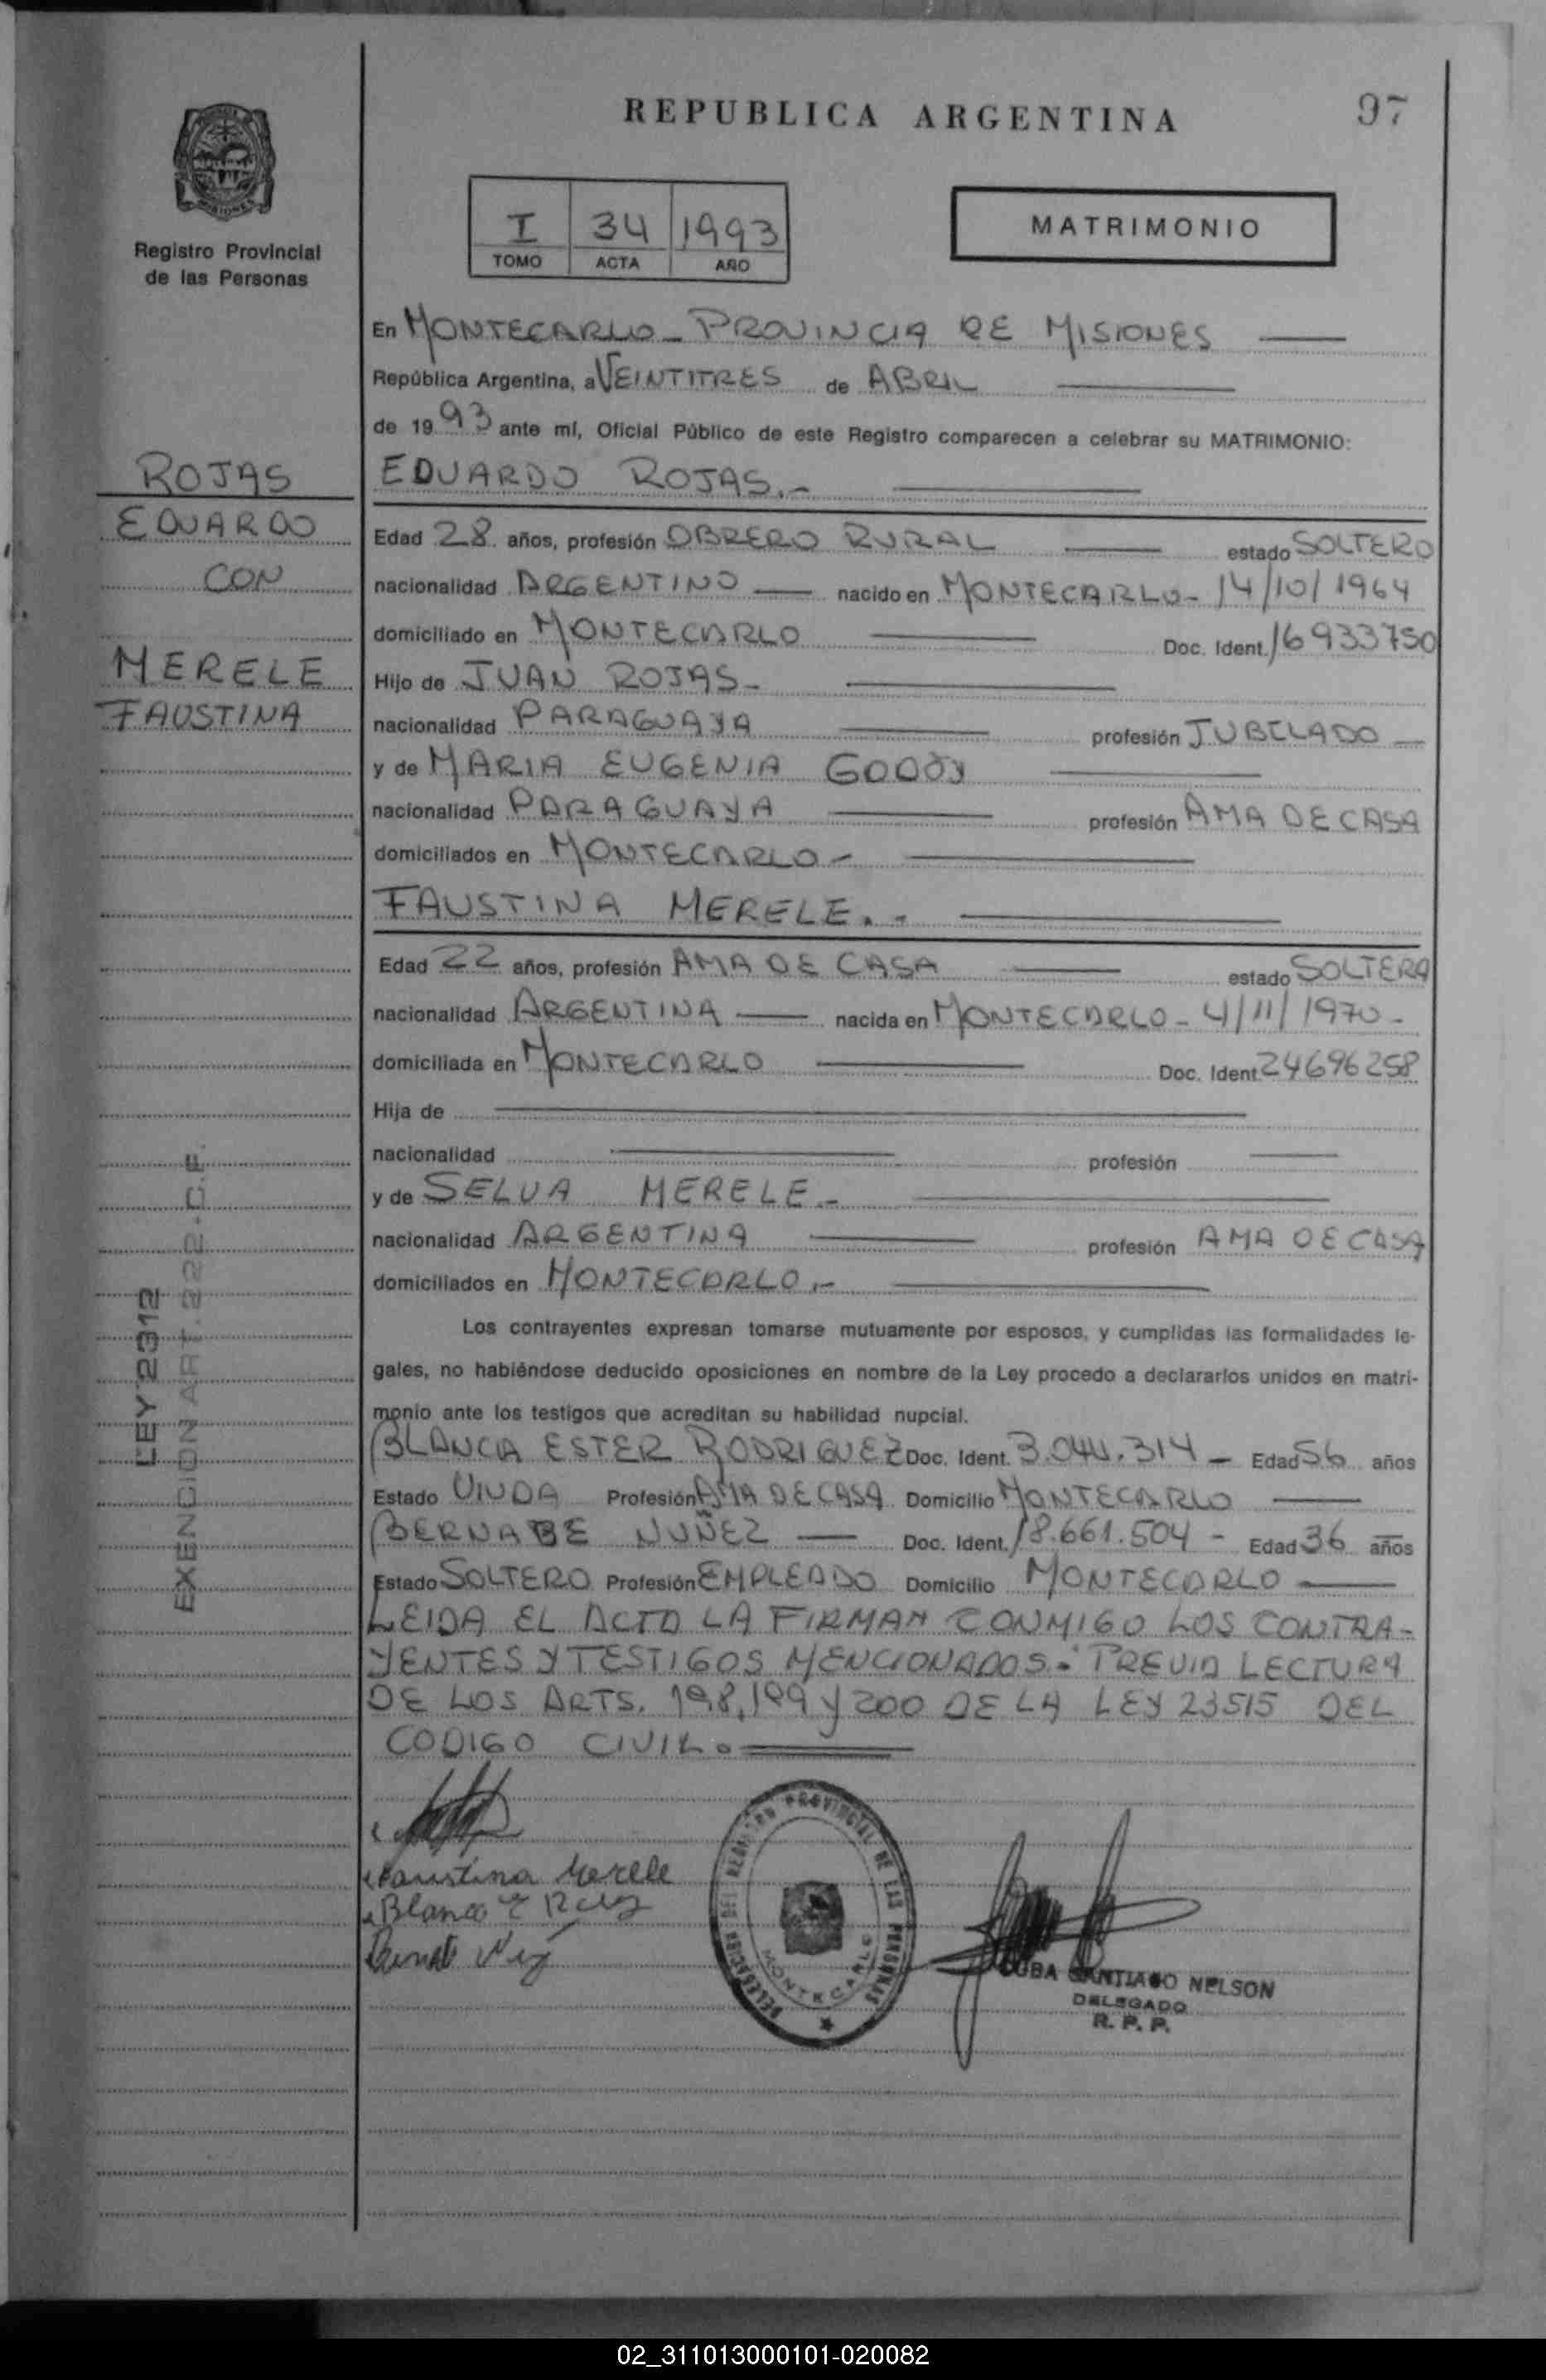 REPUBLICA ARGENTINA
97
MISIONES
Registro Provincial
de las Personas
I 34 1993
TOMO ACTA AÑO
MATRIMONIO
En MONTECARLO - PROVINCIA DE MISIONES
República Argentina, a VEINTITRES de ABRIL
de 1993 ante mí, Oficial Público de este Registro comparecen a celebrar su MATRIMONIO:
EDUARDO ROJAS.-
ROJAS
EDUARDO
CON
MERELE
FAUSTINA
Edad 28 años, profesión OBRERO RURAL estado SOLTERO
nacionalidad ARGENTINO nacido en MONTECARLO - 14/10/1964
domiciliado en MONTECARLO Doc. Ident. 16933750
Hijo de JUAN ROJAS -
nacionalidad PARAGUAYA profesión JUBILADO
y de MARIA EUGENIA GODOY
nacionalidad PARAGUAYA profesión AMA DE CASA
domiciliados en MONTECARLO -
FAUSTINA MERELE. -
Edad 22 años, profesión AMA DE CASA estado SOLTERA
nacionalidad ARGENTINA nacida en MONTECARLO - 4/11/1970 -
domiciliada en MONTECARLO Doc. Ident. 24696258
Hija de
nacionalidad profesión
y de SELVA MERELE -
nacionalidad ARGENTINA profesión AMA DE CASA
domiciliados en MONTECARLO.-
LEY 2312
EXENCION ART. 222.C.F.
Los contrayentes expresan tomarse mutuamente por esposos, y cumplidas las formalidades le-
gales, no habiéndose deducido oposiciones en nombre de la Ley procedo a declararlos unidos en matri-
monio ante los testigos que acreditan su habilidad nupcial.
BLANCA ESTER RODRIGUEZ Doc. Ident. 3.044.314 - Edad 56 años
Estado VIUDA Profesión AMA DE CASA Domicilio MONTECARLO
BERNABE NUÑEZ Doc. Ident. 18.661.504 - Edad 36 años
Estado SOLTERO Profesión EMPLEADO Domicilio MONTECARLO
LEIDA EL ACTA LA FIRMAN CONMIGO LOS CONTRA-
YENTES Y TESTIGOS MENCIONADOS.- PREVIA LECTURA
DE LOS ARTS. 198, 199 Y 200 DE LA LEY 23515 DEL
CODIGO CIVIL.
Faustina Merele
Blanca E
DELEGACION DEL REGISTRO PROVINCIAL DE LAS PERSONAS
MONTECARLO
CUBA SANTIAGO NELSON
DELEGADO
R. P. P.
02_311013000101-020082